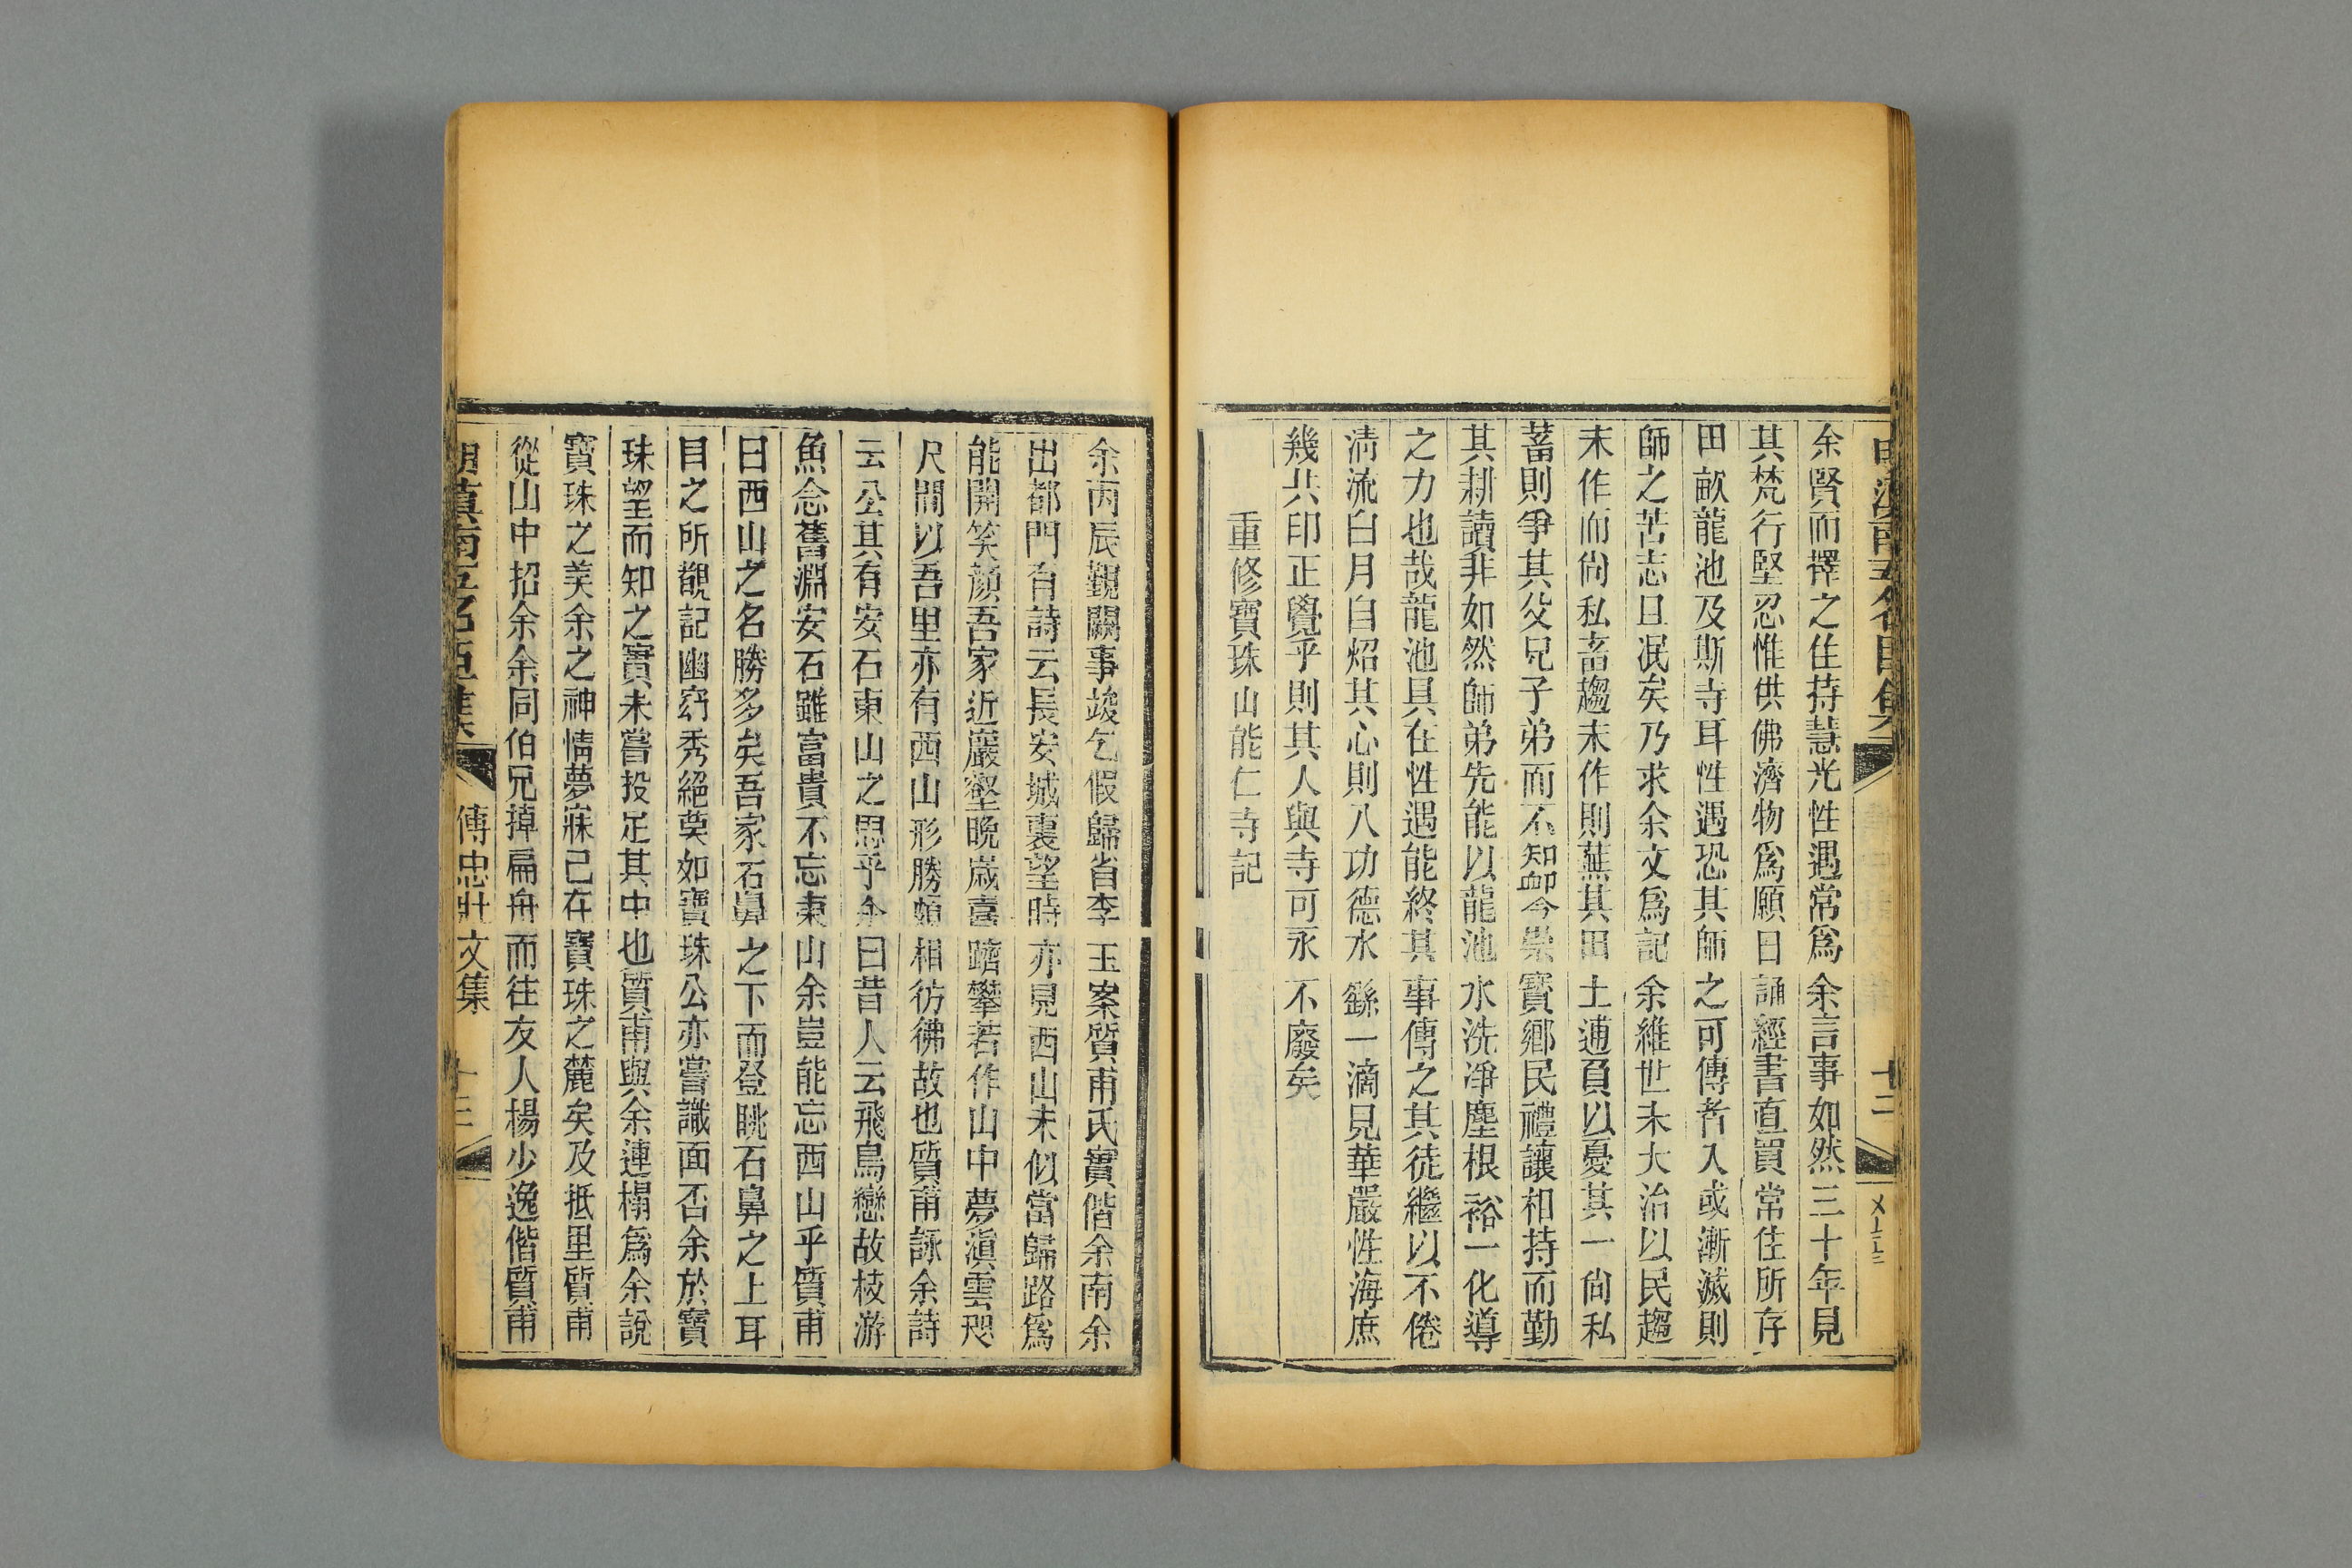 余賢而擇之住持慧光性遇常爲余言事如然三十年見
其梵行堅忍惟供佛濟物爲願日誦經書直買常住所存
田畝龍池及斯寺耳性遇恐其師之可傳者入或漸滅則
師之苦志且泯矣乃求余文爲記余維世末大治以民趨
末作而尙私畜趨末作則蕪其田土逋負以憂其一尙私
蓄則爭其父兄子弟而不知卹今崇寶鄉民禮讓和持而勤
其耕讀非如然師弟先能以龍池水洗淨塵根裕一化導
之力也哉龍池具在性遇能終其事傳之其徒繼以不倦
淸流白月自炤其心則八功德水繇一滴見華嚴性海庶
幾共印正覺乎則其人與寺可永不廢矣
重修寶珠山能仁寺記
十二
余丙辰觀闕事竣乞假歸省李玉案質甫氏實偕余南余
出都門有詩云長安城裏望時亦見西山未似當歸路爲
能開笑顏吾家近巖壑晚歲喜躋攀若作山中夢滇雲咫
尺間以吾里亦有西山形勝頗相彷彿故也質甫詠余詩
云公其有安石東山之思乎余曰昔人云飛鳥戀故枝游
魚念舊淵安石雖富貴不忘東山余豈能忘西山乎質甫
曰西山之名勝多矣吾家石鼻之下而登眺石鼻之上耳
目之所覩記幽窈秀絕莫如寶珠公亦嘗識面否余於寶
珠望而知之實未嘗投足其中也質甫與余連榻爲余說
寶珠之美余之神情夢寐已在寶珠之麓矣及抵里質甫
從山中招余余同伯兄掉扁舟而往友人楊少逸偕質甫
傅忠壯文集
十三